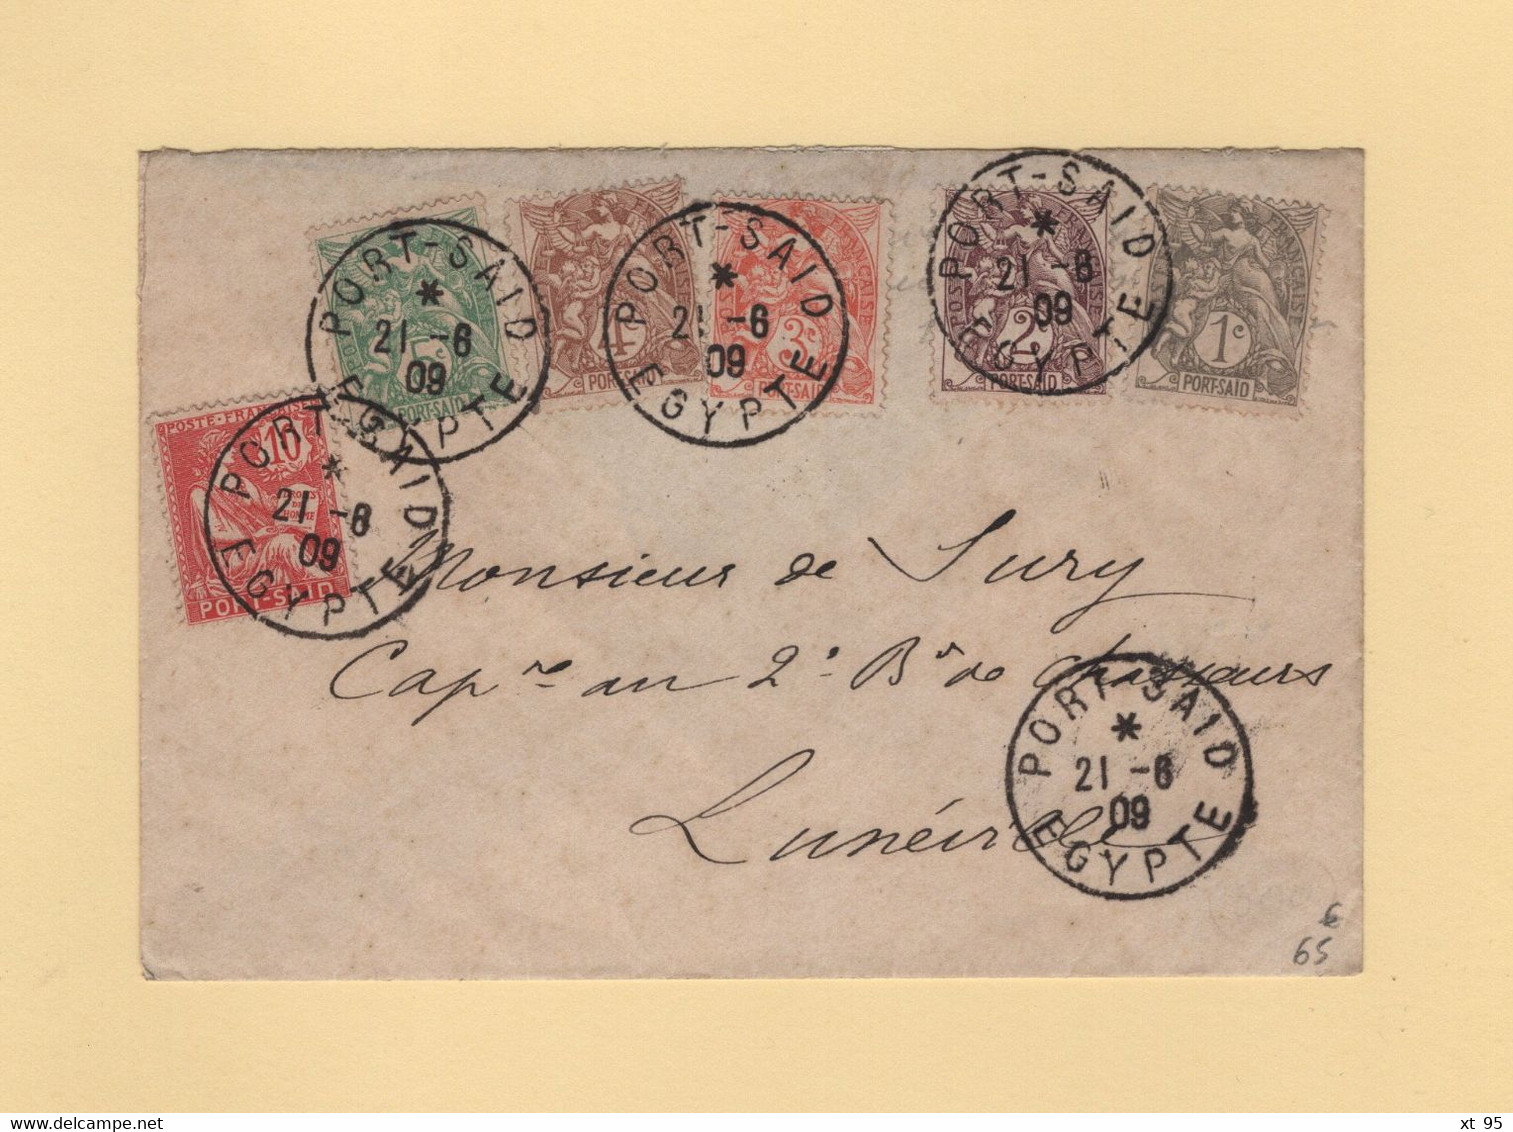 PORT-SAID
5c
PORT-SAID
21 -6
09
EGYPTE
4c
PORT-SAID
PORT-SAID
21 -6
09
EGYPTE
3c
2c
PORT-SAID
PORT-SAID
21 -6
09
EGYPTE
POSTE FRANÇAISE
1c
PORT-SAID
POSTE FRANÇAISE
10
DROITS
DE
L'HOMME
PORT-SAID
PORT-SAID
21 -6
09
EGYPTE
Monsieur de Sury
Capne au 2e Bn de Chasseurs
Lunéville
PORT-SAID
21 -6
09
EGYPTE
65
xt 95